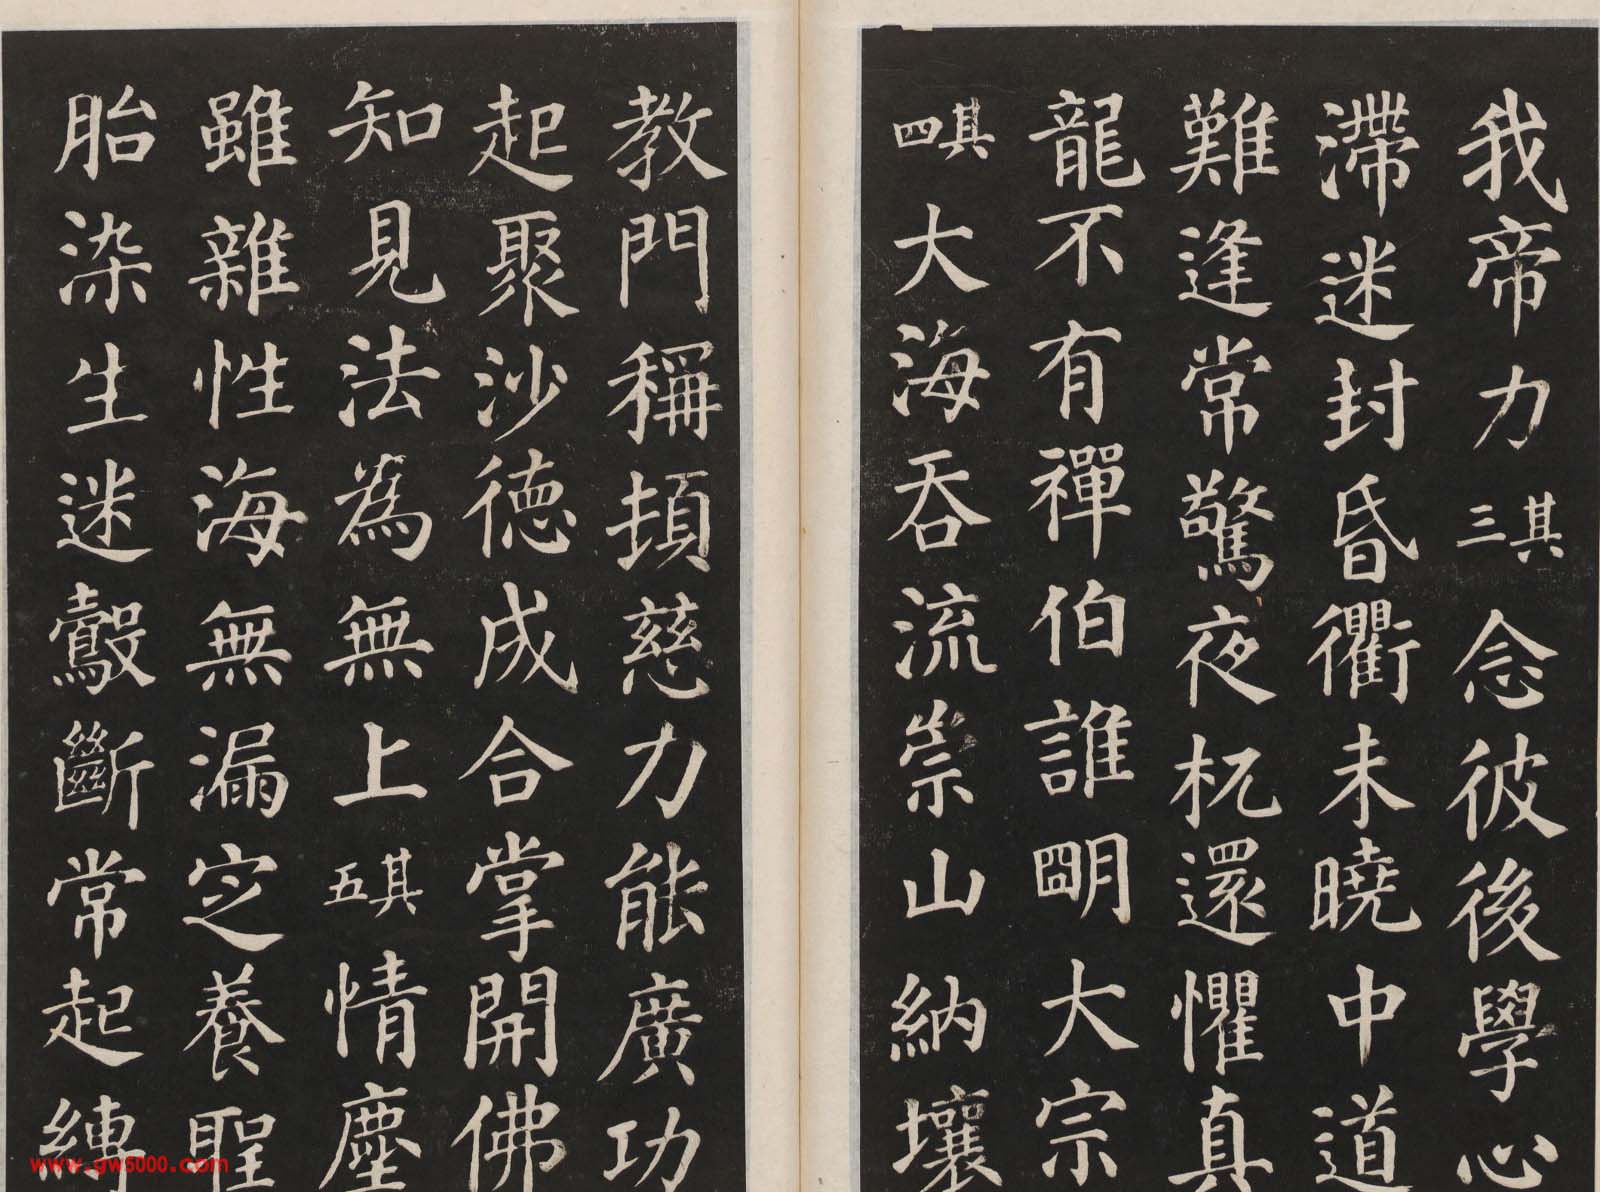 我帝力其三念彼後學心
滯迷封昏衢未曉中道
難逢常驚夜杌還懼真
龍不有禪伯誰明大宗
其四大海吞流崇山納壤
教門稱頓慈力能廣功
起聚沙德成合掌開佛
知見法為無上其五情塵
雖雜性海無漏定養聖
胎染生迷鷇斷常起縛
www.gw5000.com